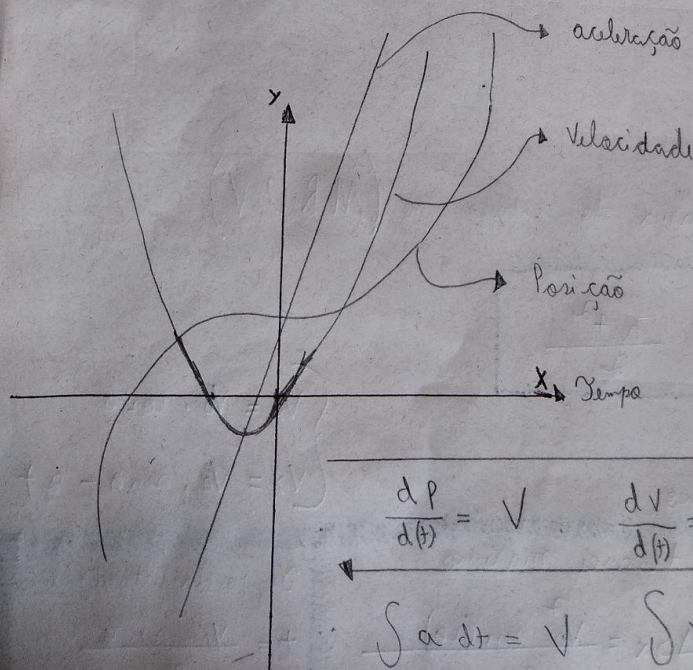 aceleração
Y
Velocidade
Posição
X Tempo
dP/d(t) = V dV/d(t) =
∫ a dt = V = ∫ V